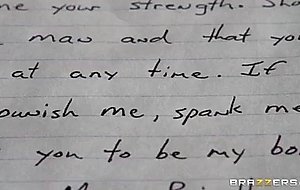 me your strength. Sho
man and that yo
at any time. If
punish me, spank me
you to be my bo
BRAZZERS